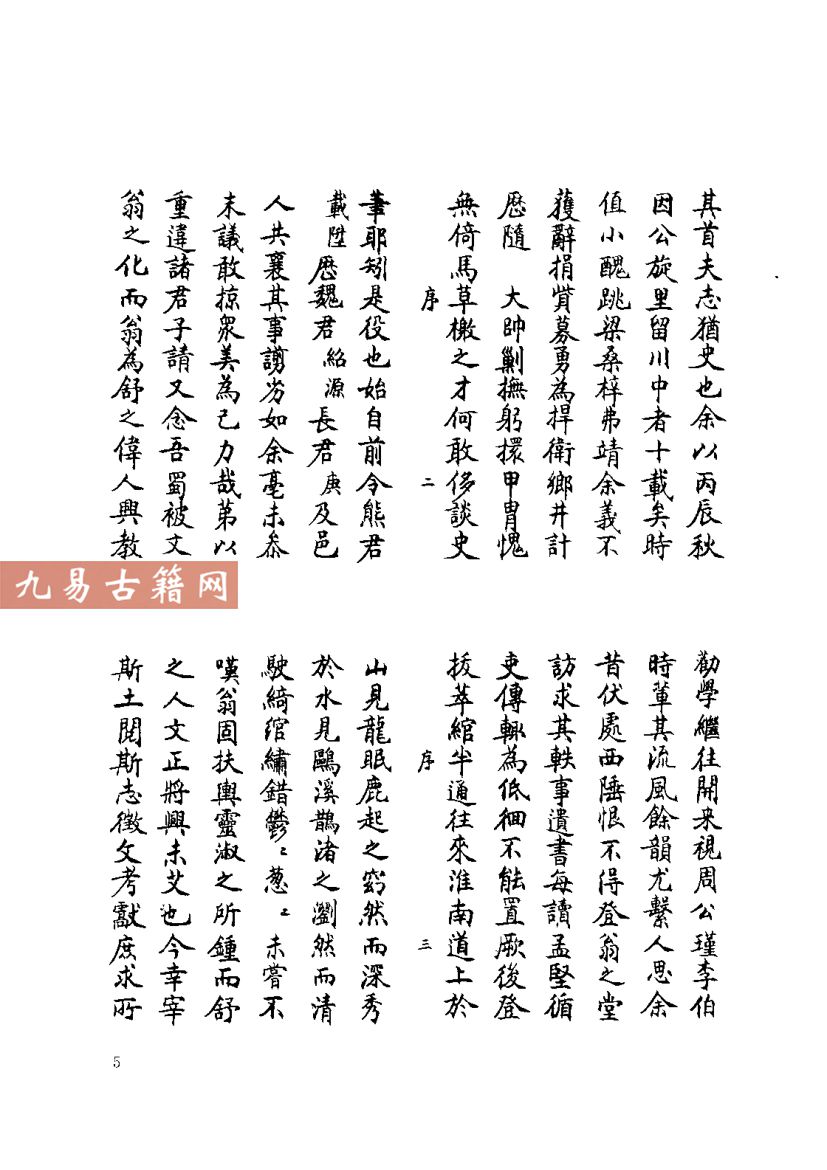 其首夫志猶史也余以丙辰秋
因公旋里留川中者十載矣時
值小醜跳梁桑梓弗靖余義不
獲辭捐貲募勇為捍衛鄉井計
歷隨 大帥剿撫躬擐甲胄愧
無倚馬草檄之才何敢侈談史
序 二
筆耶矧是役也始自前令熊君
載陞歷魏君紹源長君庚及邑
人共襄其事謭劣如余毫未叅
末議敢掠眾美為己力哉第以
重違諸君子請又念吾蜀被文
翁之化而翁為舒之偉人興教
勸學繼往開来視周公瑾李伯
時輩其流風餘韻尤繫人思余
昔伏處西陲恨不得登翁之堂
訪求其軼事遺書每讀孟堅循
吏傳輒為低徊不能置厥後登
拔萃綰半通往來淮南道上於
序 三
山見龍眠鹿起之窈然而深秀
於水見鷗溪鵲渚之瀏然而清
駛綺綰繡錯鬱〻葱〻未嘗不
嘆翁固扶輿靈淑之所鍾而舒
之人文正將興未艾也今幸宰
斯土閱斯志徵文考獻庶求所
九易古籍网
5